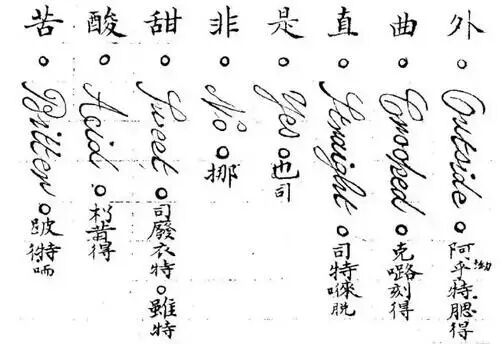 外 Outside 阿乎特腮得
曲 Crooked 克刻得
直 Straight 司特唻脱
是 Yes 也司
非 No 挪
甜 Sweet 司廢衣特 雖特
酸 Acid 昔得
苦 Bitter